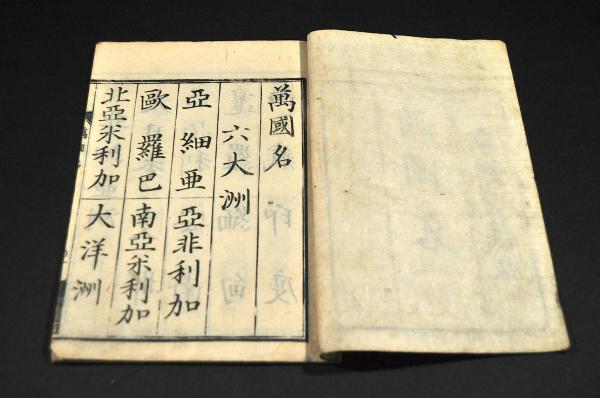 萬國名
六大洲
亞細亜 亞非利加
歐羅巴 南亞米利加
北亞米利加 大洋洲